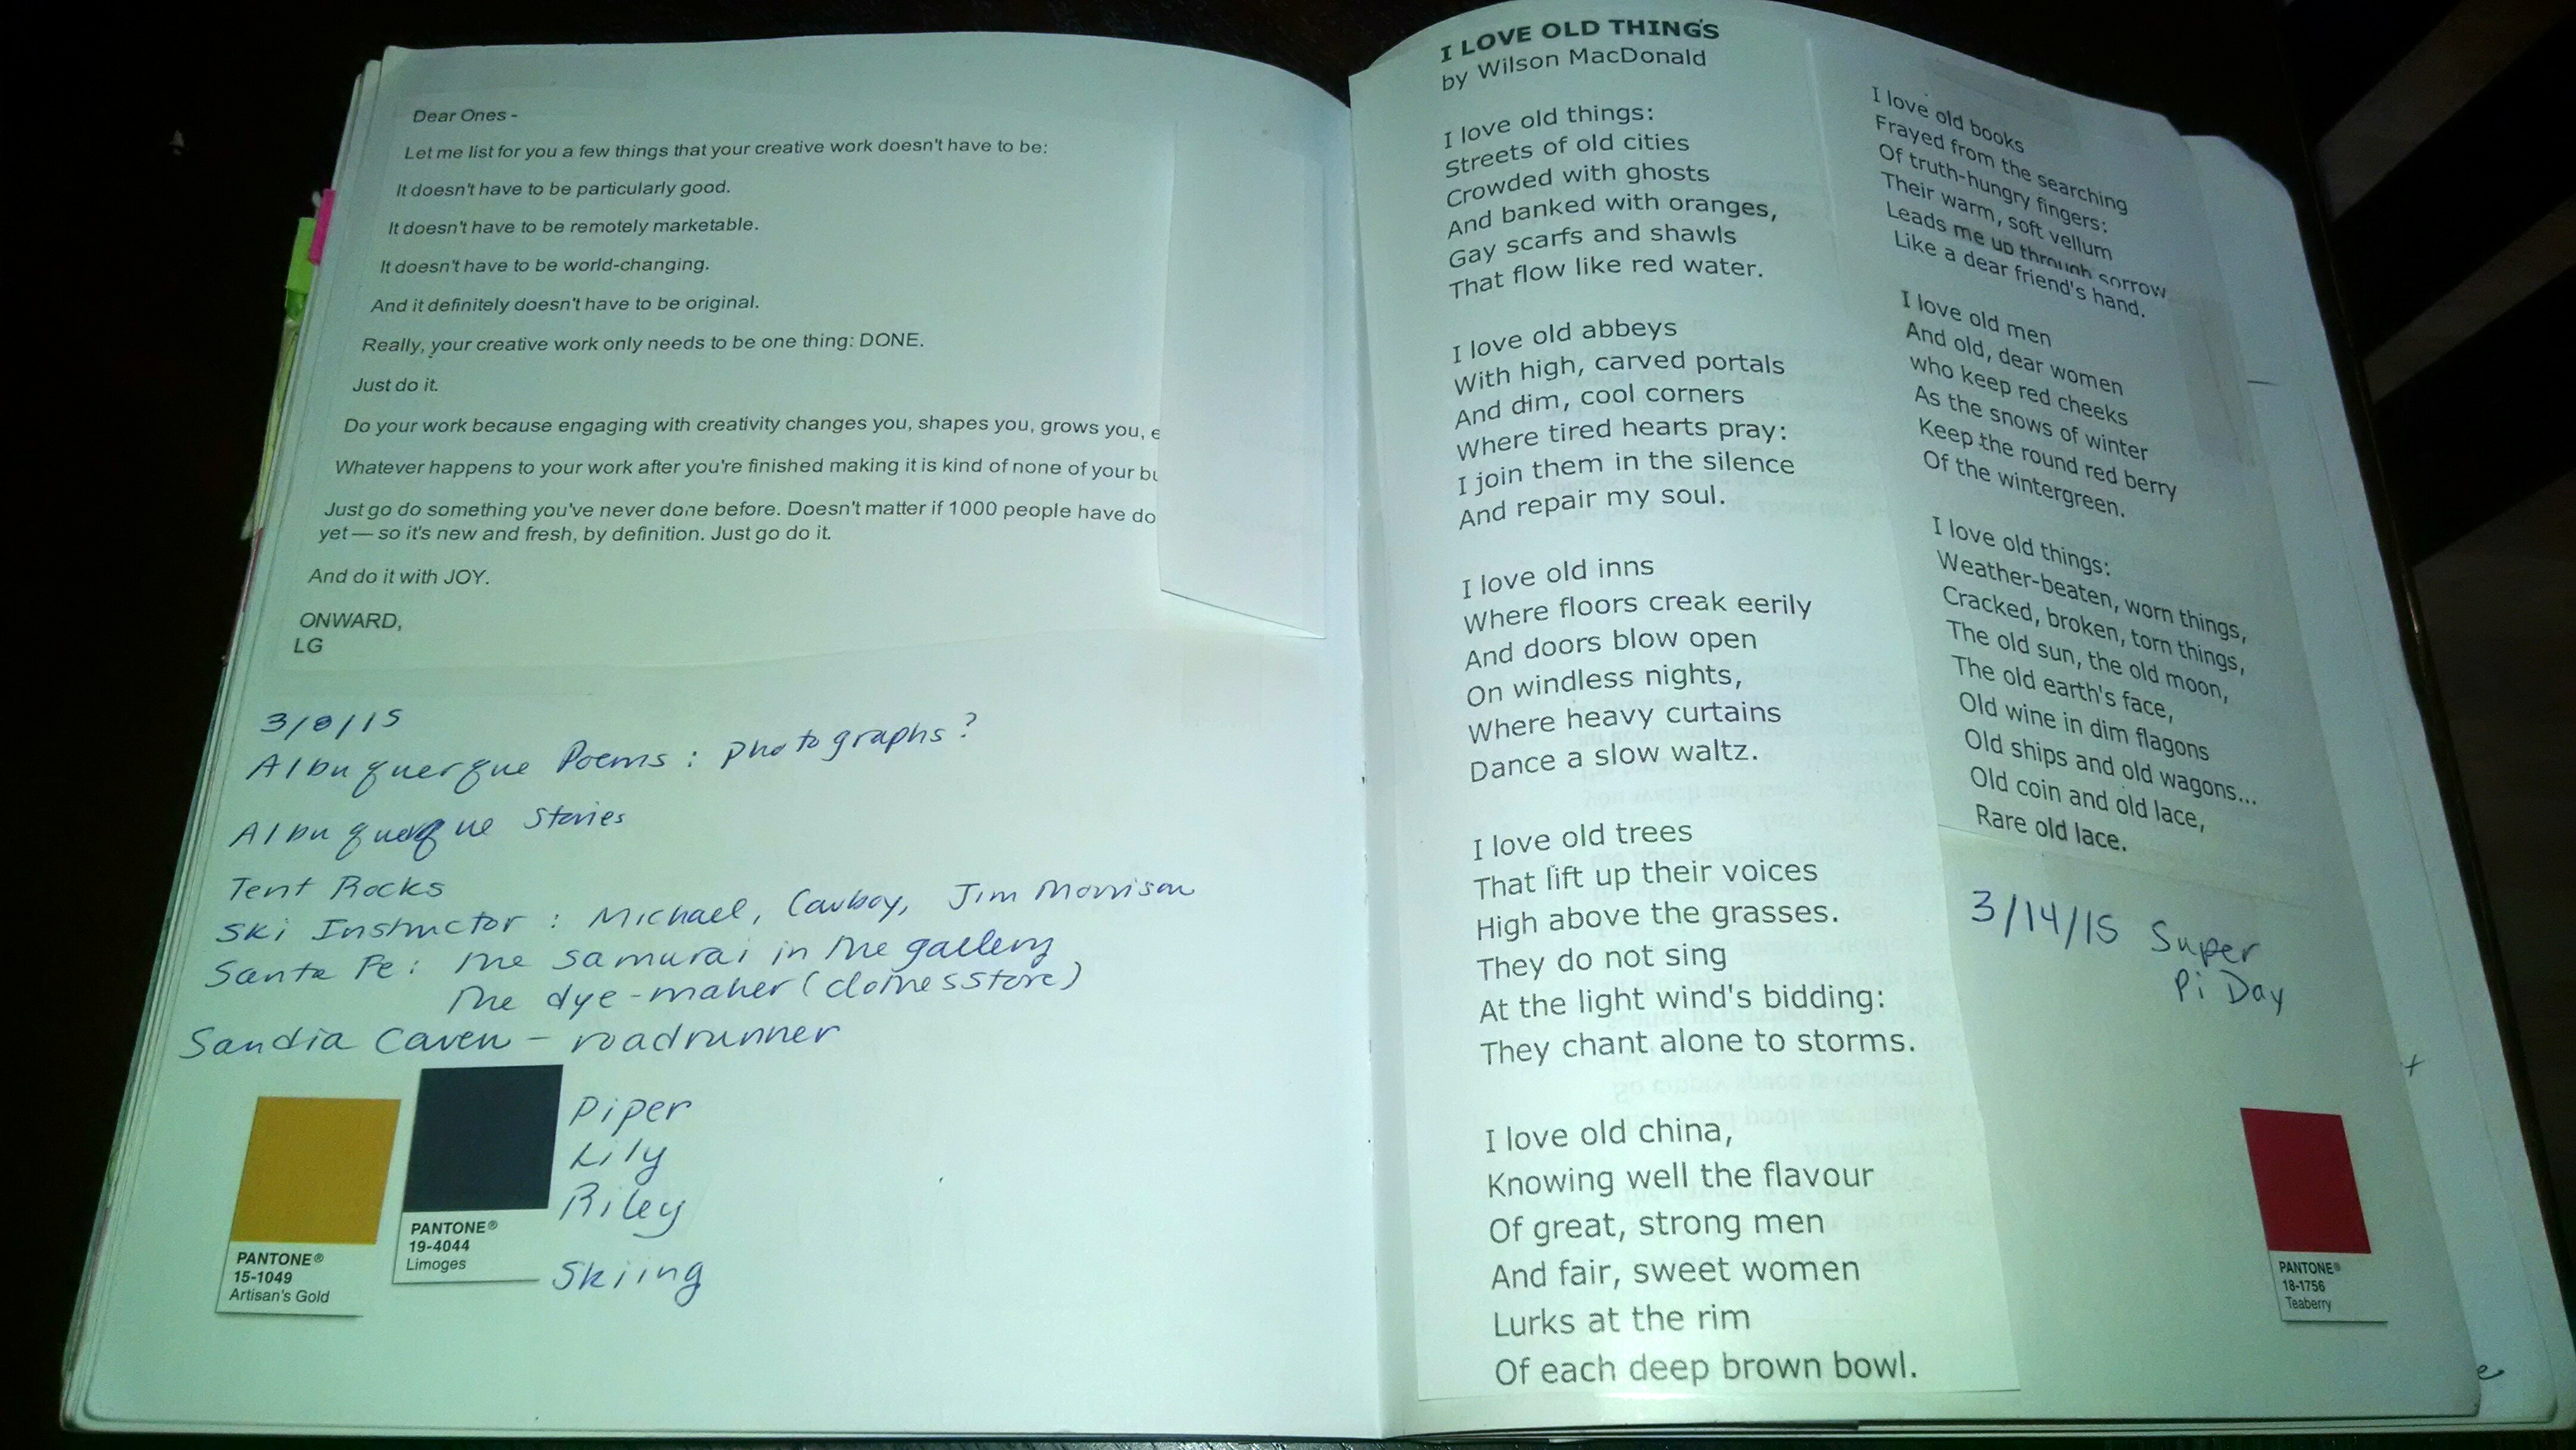 Dear Ones -
Let me list for you a few things that your creative work doesn't have to be:
It doesn't have to be particularly good.
It doesn't have to be remotely marketable.
It doesn't have to be world-changing.
And it definitely doesn't have to be original.
Really, your creative work only needs to be one thing: DONE.
Just do it.
Do your work because engaging with creativity changes you, shapes you, grows you, e
Whatever happens to your work after you're finished making it is kind of none of your bu
Just go do something you've never done before. Doesn't matter if 1000 people have do
yet — so it's new and fresh, by definition. Just go do it.
And do it with JOY.
ONWARD,
LG
3/8/15
Albuquerque Poems: photographs?
Albuquerque Stories
Tent Rocks
Ski Instructor: Michael, Cowboy, Jim Morrison
Santa Fe: The samurai in the gallery
The dye-maker (clothes store)
Sandia Caven - roadrunner
Piper
Lily
Riley
Skiing
PANTONE®
15-1049
Artisan's Gold
PANTONE®
19-4044
Limoges
I LOVE OLD THINGS
by Wilson MacDonald
I love old things:
Streets of old cities
Crowded with ghosts
And banked with oranges,
Gay scarfs and shawls
That flow like red water.
I love old abbeys
With high, carved portals
And dim, cool corners
Where tired hearts pray:
I join them in the silence
And repair my soul.
I love old inns
Where floors creak eerily
And doors blow open
On windless nights,
Where heavy curtains
Dance a slow waltz.
I love old trees
That lift up their voices
High above the grasses.
They do not sing
At the light wind's bidding:
They chant alone to storms.
I love old china,
Knowing well the flavour
Of great, strong men
And fair, sweet women
Lurks at the rim
Of each deep brown bowl.
I love old books
Frayed from the searching
Of truth-hungry fingers:
Their warm, soft vellum
Leads me up through sorrow
Like a dear friend's hand.
I love old men
And old, dear women
who keep red cheeks
As the snows of winter
Keep the round red berry
Of the wintergreen.
I love old things:
Weather-beaten, worn things,
Cracked, broken, torn things,
The old sun, the old moon,
The old earth's face,
Old wine in dim flagons
Old ships and old wagons...
Old coin and old lace,
Rare old lace.
3/14/15 Super
Pi Day
PANTONE®
18-1756
Teaberry